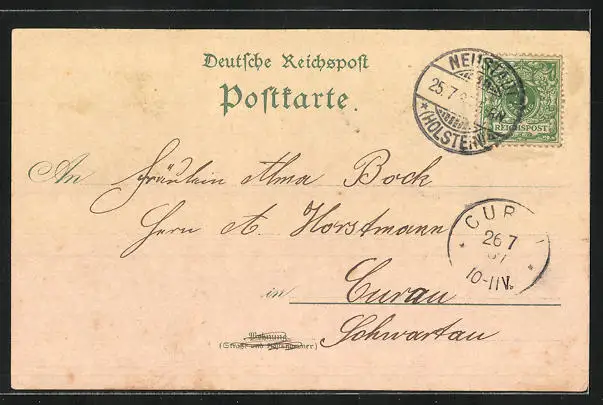 Deutsche Reichspost
Postkarte.
NEUSTADT
25. 7
* (HOLSTEIN)
REICHSPOST
An Fräulein Alma Bock
Herrn A. Horstmann
CUR
26 7
10-11V.
in Curau
Schwartau
Wohnung
(Straße und Hausnummer)